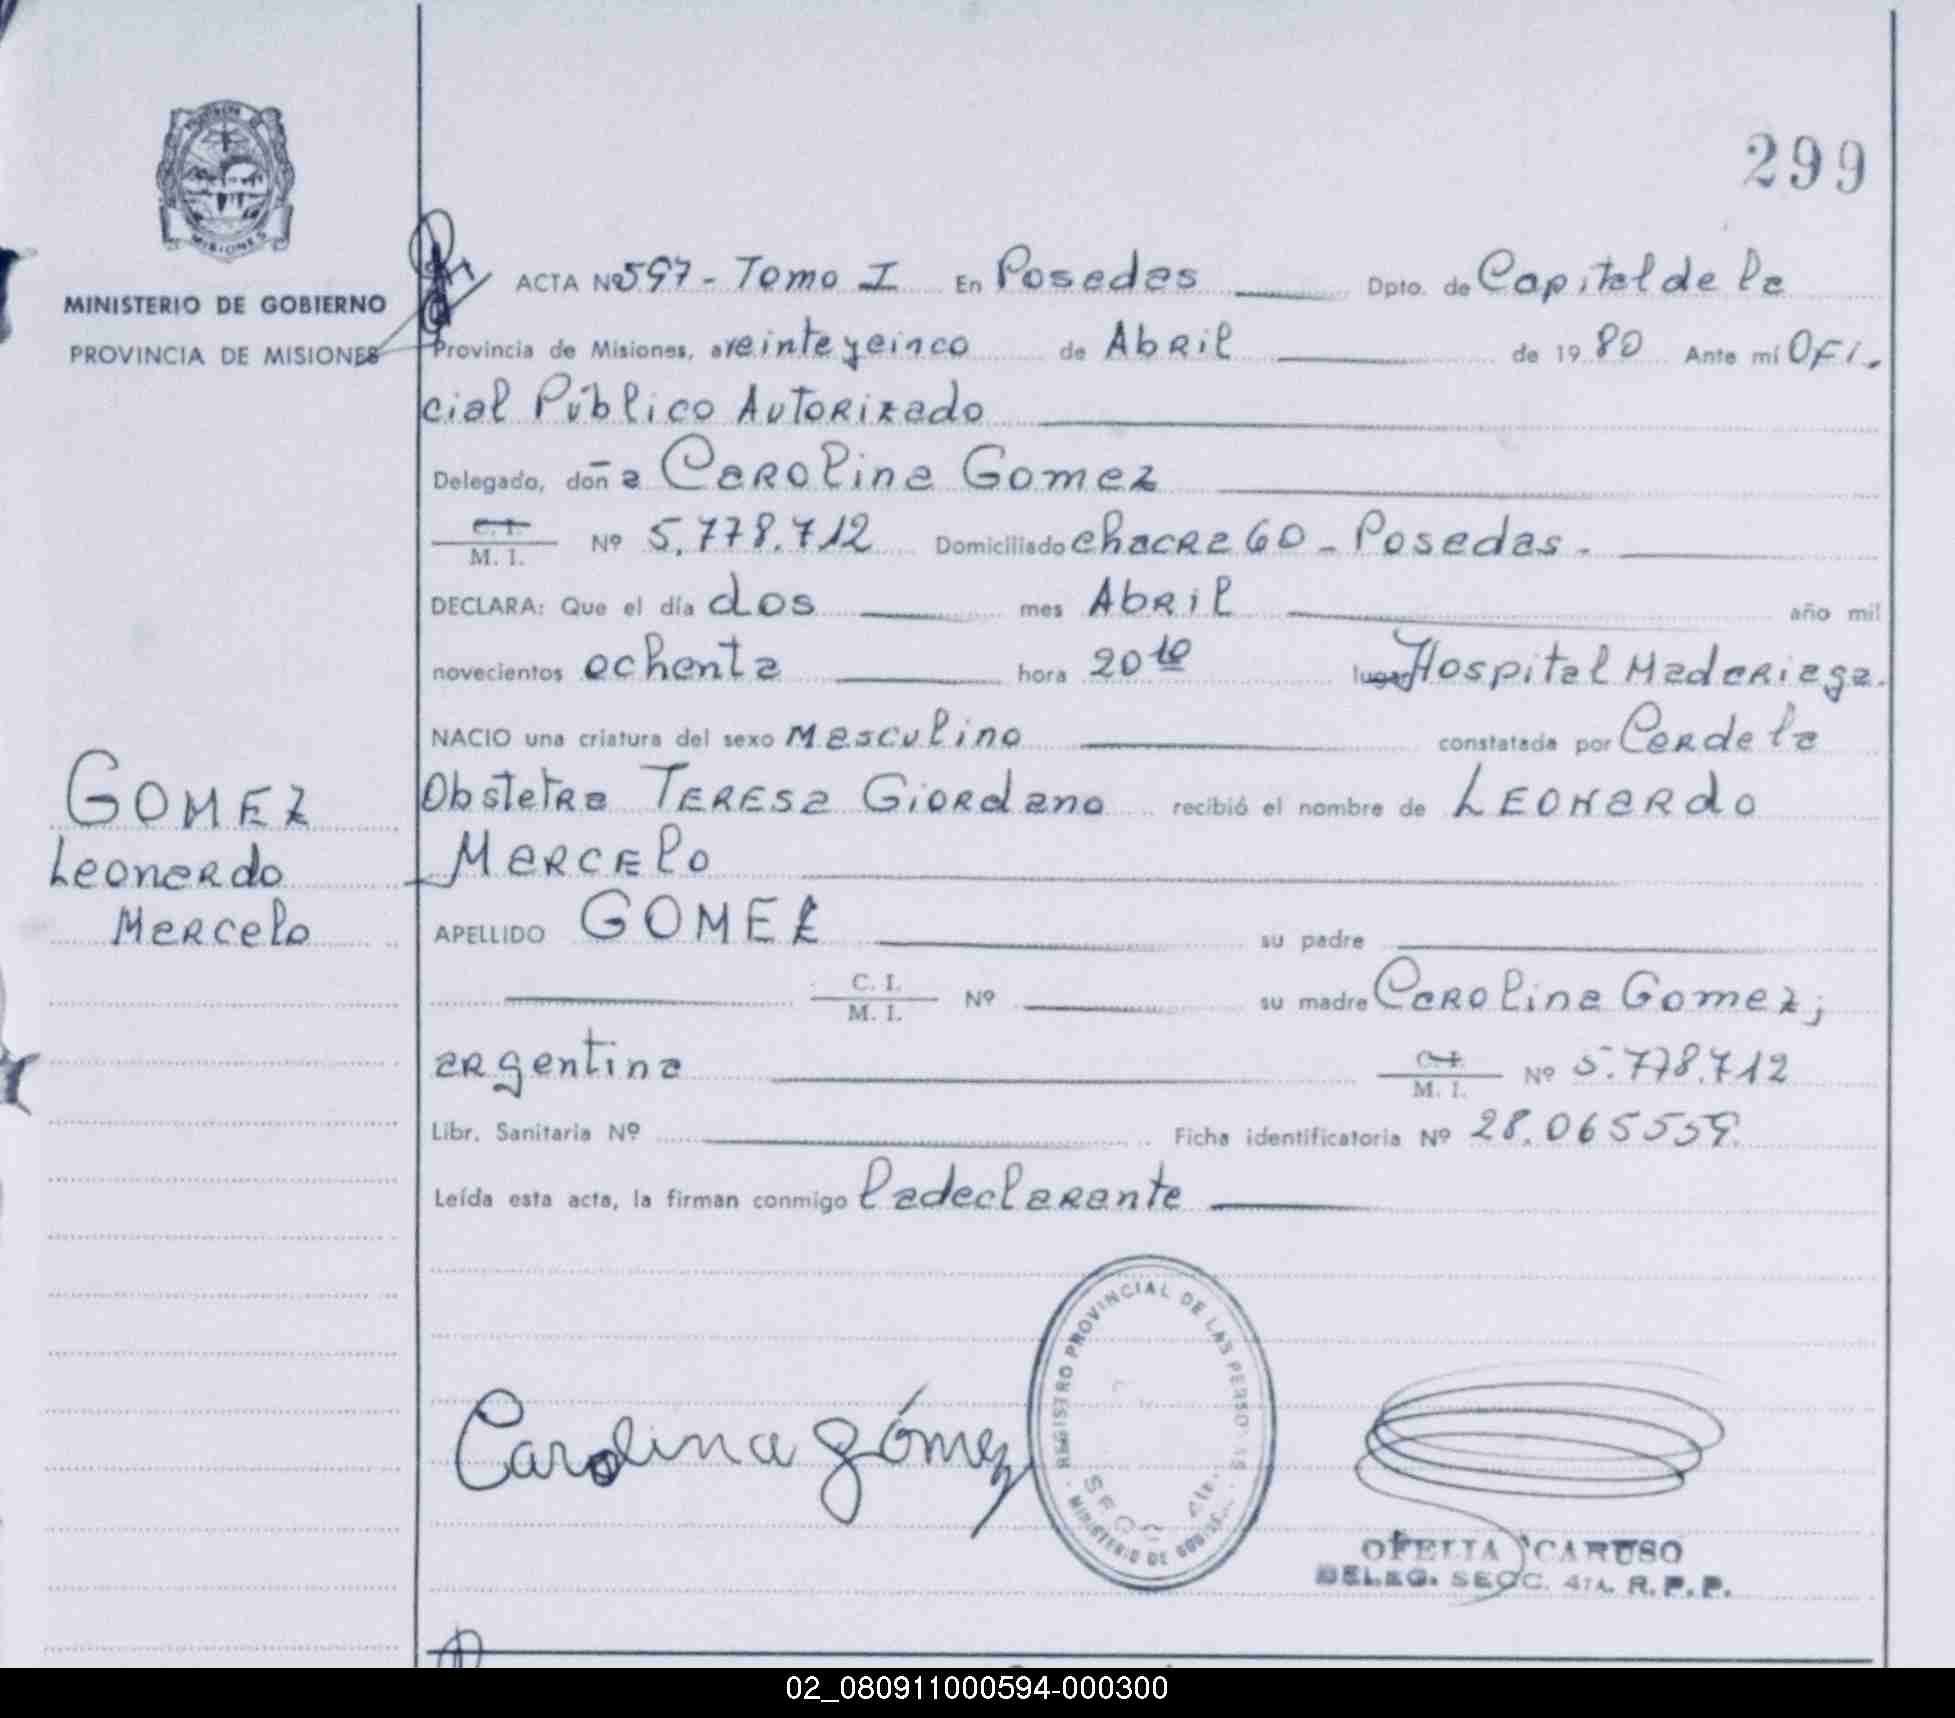 299
MISIONES
MINISTERIO DE GOBIERNO
PROVINCIA DE MISIONES
ACTA Nº 597 - Tomo I En Posadas Dpto. de Capital de la
Provincia de Misiones, a veinte y cinco de Abril de 1980 Ante mí Ofi-
cial Público Autorizado
Delegado, doña Carolina Gomez
C. I. / M. I. Nº 5.778.712 Domiciliado chacra 60 - Posadas.
DECLARA: Que el día dos mes Abril año mil
novecientos ochenta hora 20 10 lugar Hospital Madariaga.
NACIO una criatura del sexo Masculino constatada por Cer de la
Obstetra Teresa Giordano recibió el nombre de LEONARdo
Marcelo
APELLIDO GOMEZ su padre
C. I. / M. I. Nº su madre Carolina Gomez;
argentina C. I. / M. I. Nº 5.778.712
Libr. Sanitaria Nº Ficha identificatoria Nº 28.065559.
Leída esta acta, la firman conmigo la declarante
GOMEZ
Leonardo
Marcelo
Carolina Gómez
REGISTRO PROVINCIAL DE LAS PERSONAS
MINISTERIO DE GOBIERNO
SECC. 4ta.
OFELIA CARUSO
DELEG. SECC. 4TA. R. P. P.
02_080911000594-000300